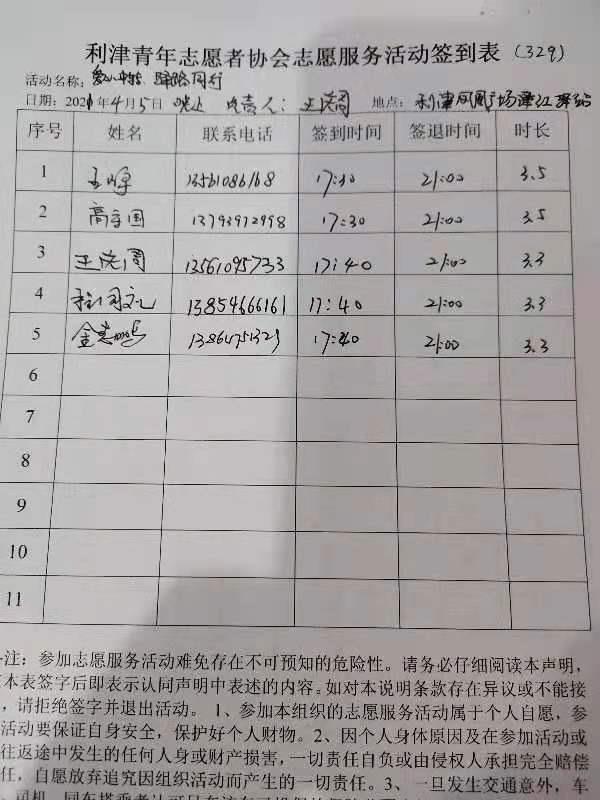 利津青年志愿者协会志愿服务活动签到表 (329)
活动名称: 同行
日期: 2021年4月5日 晚上 负责人: 王 周 地点: 利津 广场
序号 姓名 联系电话 签到时间 签退时间 时长
1 王峰 13561086168 17:30 21:00 3.5
2 高 国 13793972998 17:30 21:00 3.5
3 王 周 13561095733 17:40 21:00 3.3
4 13854666161 17:40 21:00 3.3
5 金 鸣 13864751321 17:40 21:00 3.3
6
7
8
9
10
11
注: 参加志愿服务活动难免存在不可预知的危险性。请务必仔细阅读本声明,
本表签字后即表示认同声明中表述的内容。如对本说明条款存在异议或不能接
,请拒绝签字并退出活动。 1、参加本组织的志愿服务活动属于个人自愿,参
活动要保证自身安全,保护好个人财物。2、因个人身体原因及在参加活动或
往返途中发生的任何人身或财产损害,一切责任自负或由侵权人承担完全赔偿
任,自愿放弃追究因组织活动而产生的一切责任。3、一旦发生交通意外,车